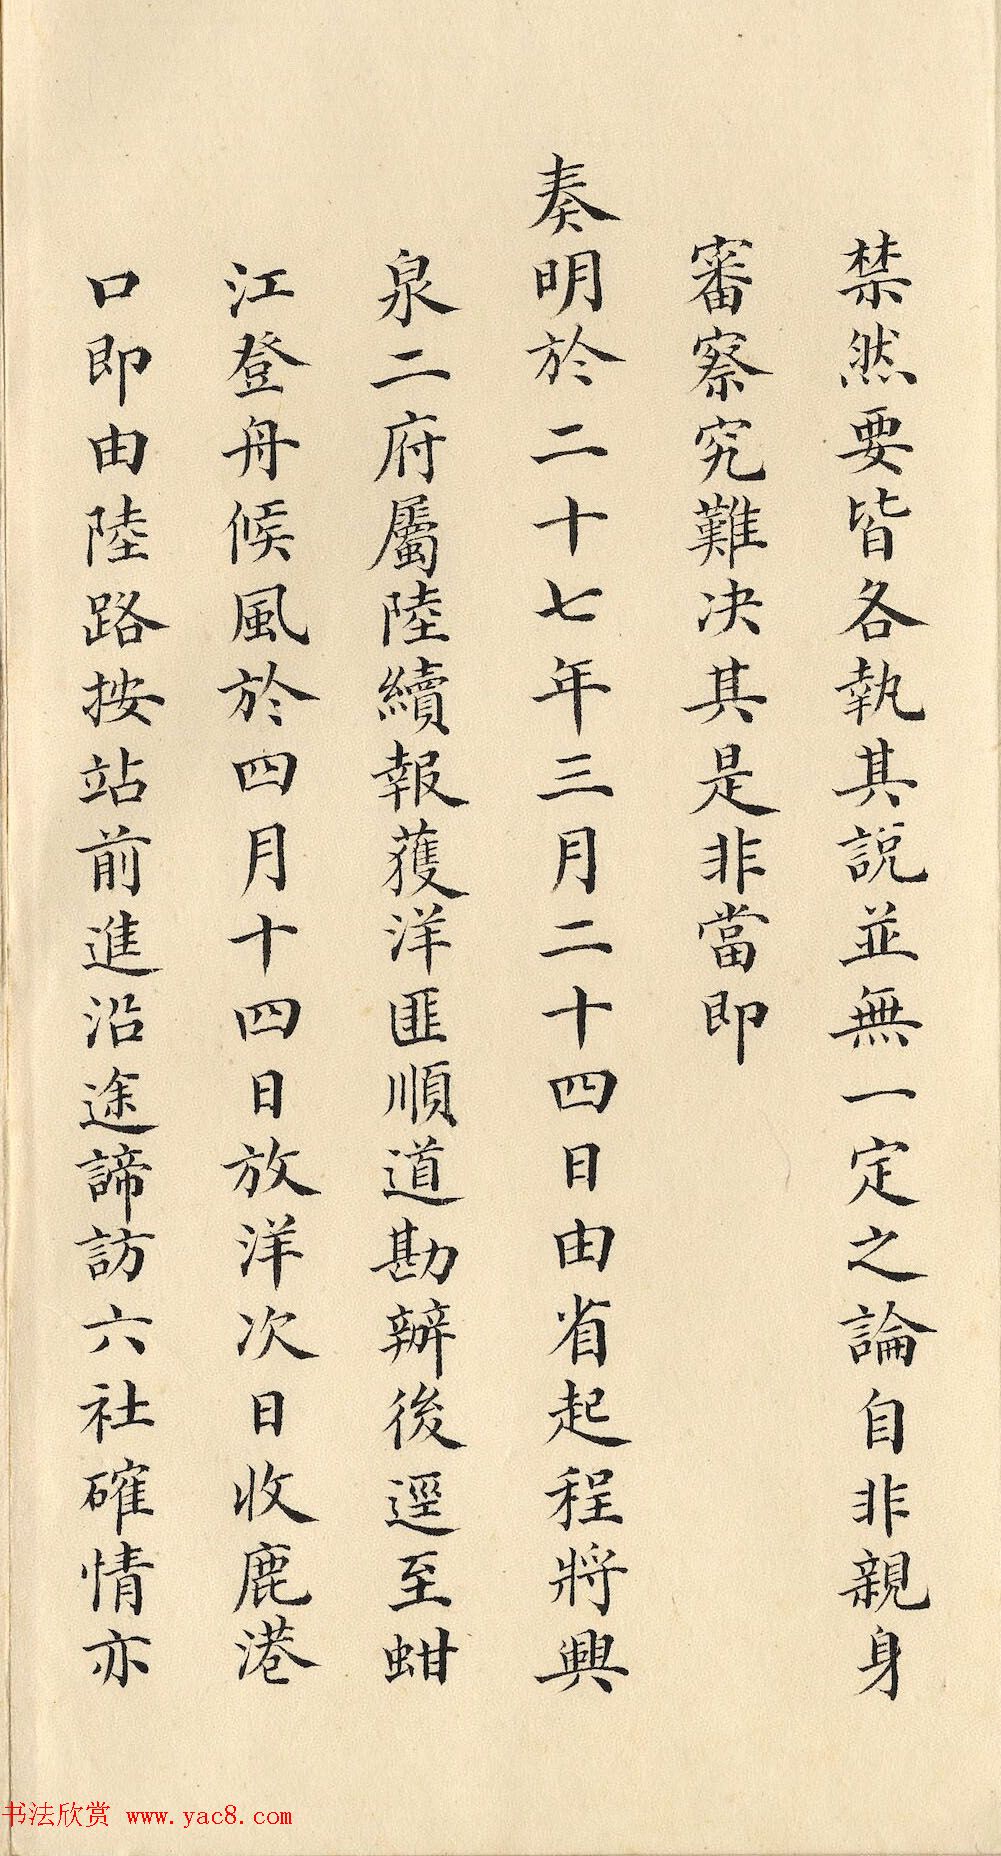 禁然要皆各執其說並無一定之論自非親身
審察究難决其是非當即
奏明於二十七年三月二十四日由省起程將興
泉二府屬陸續報獲洋匪順道勘辦後逕至蚶
江登舟候風於四月十四日放洋次日收鹿港
口即由陸路按站前進沿途諦訪六社確情亦
书法欣赏 www.yac8.com